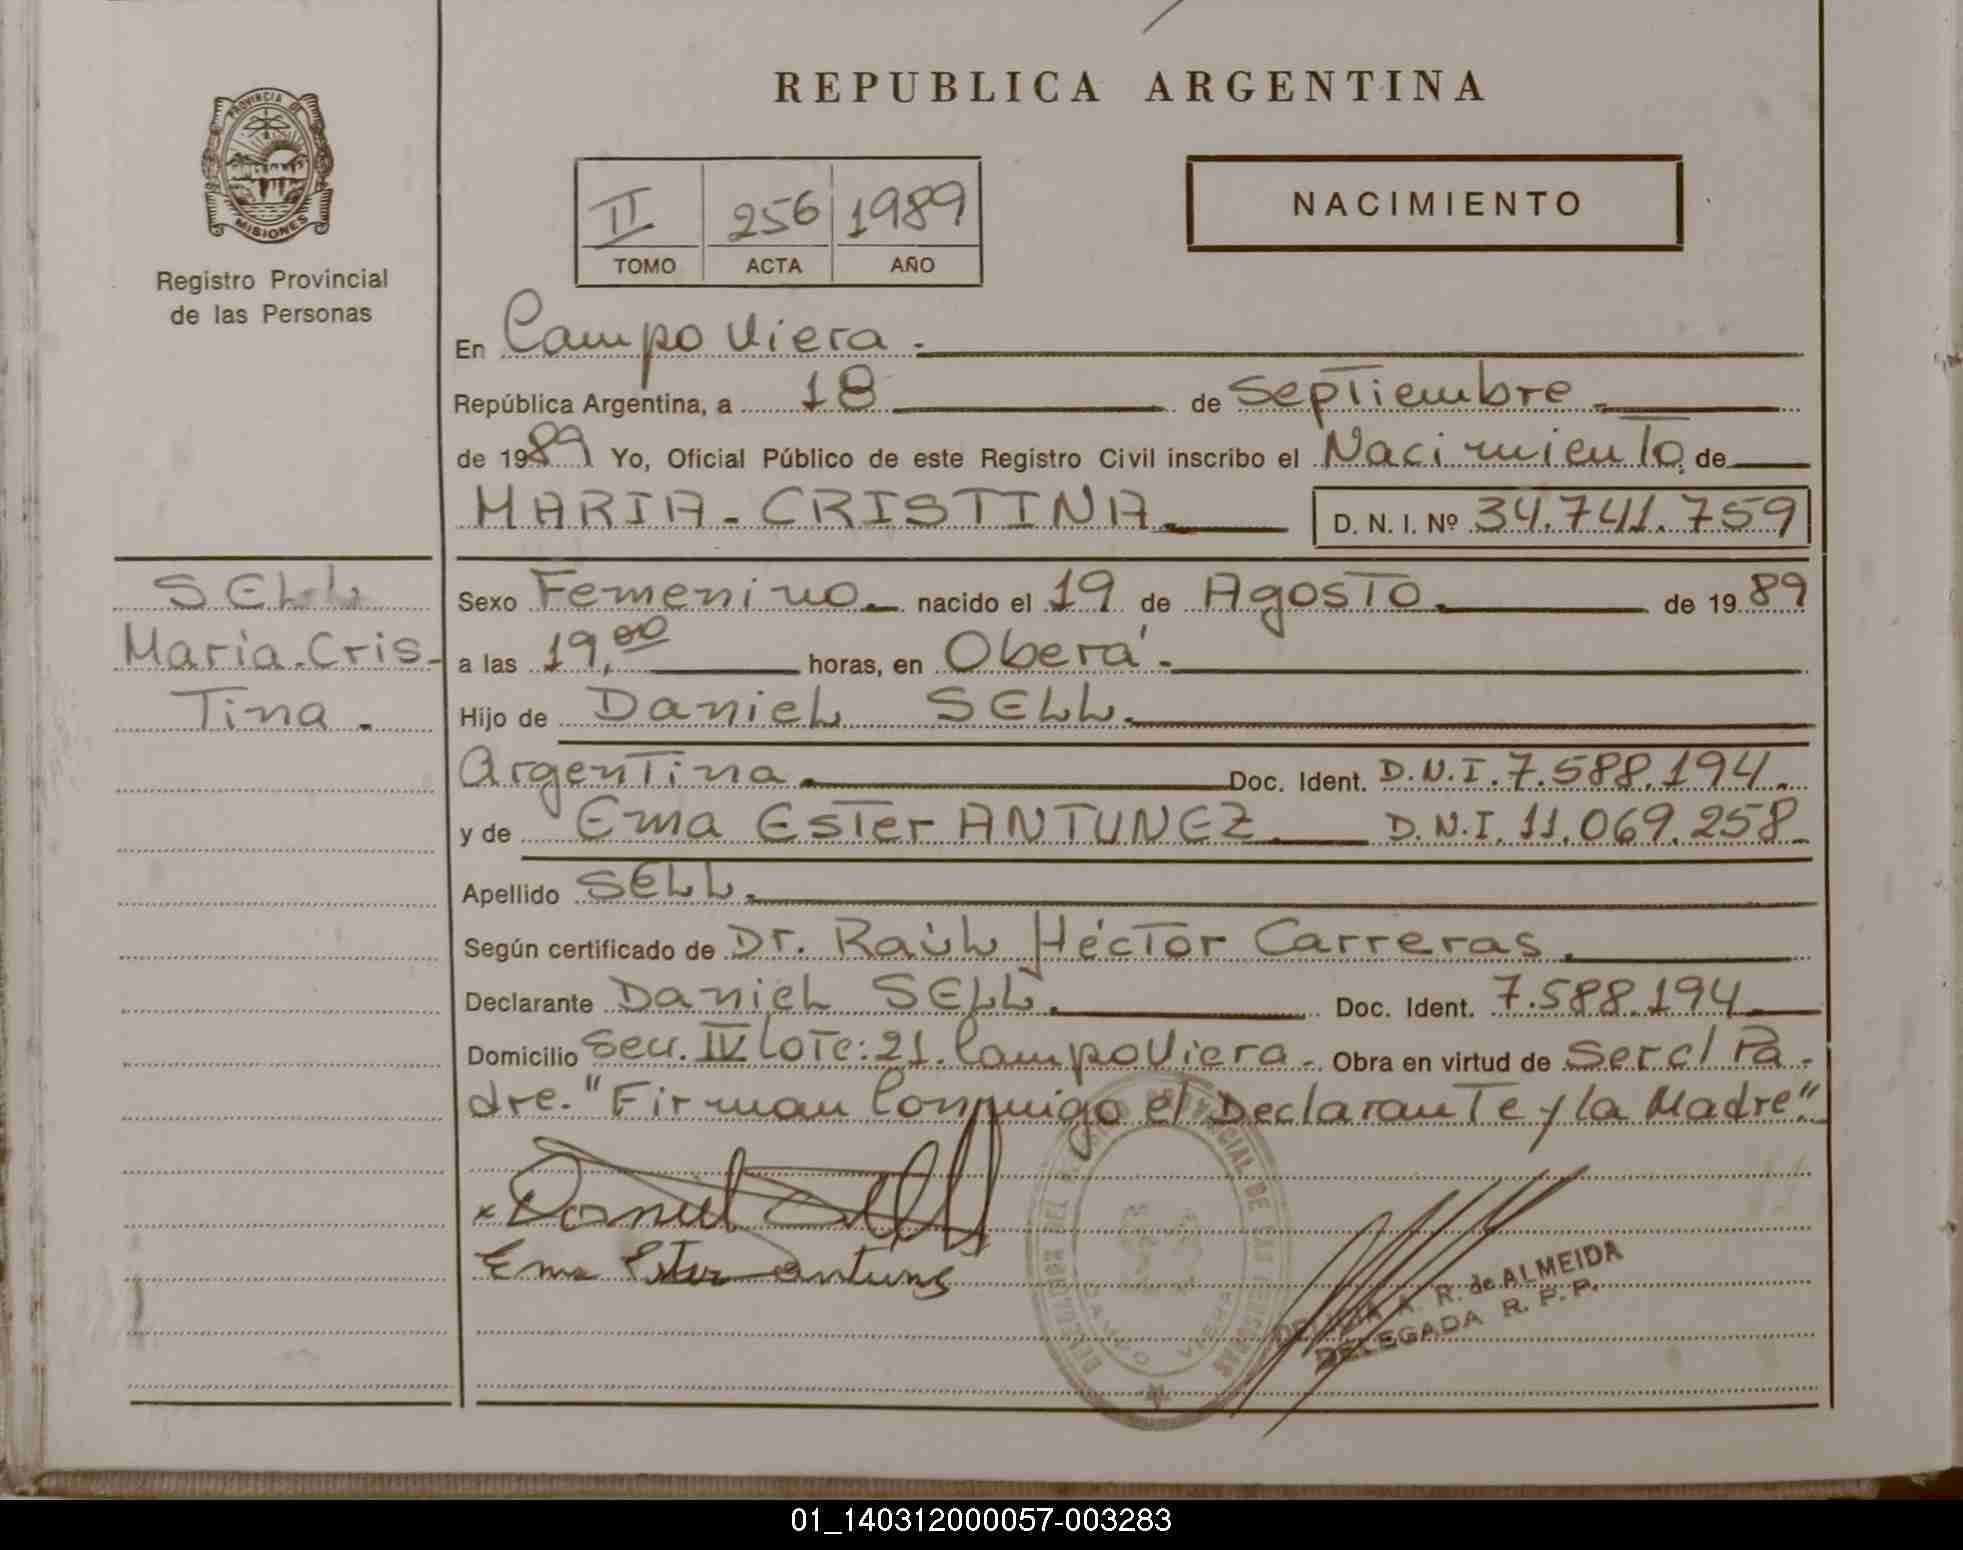 REPUBLICA ARGENTINA
PROVINCIA DE
MISIONES
Registro Provincial
de las Personas
II 256 1989
TOMO ACTA AÑO
NACIMIENTO
En Campo Viera.
República Argentina, a 18 de Septiembre
de 1989 Yo, Oficial Público de este Registro Civil inscribo el Nacimiento de
MARIA-CRISTINA. D. N. I. Nº 34.741.759
SELL
Maria-Cris-
Tina.
Sexo Femenino nacido el 19 de Agosto de 1989
a las 19,00 horas, en Oberá.
Hijo de Daniel SELL.
Argentina Doc. Ident. D.N.I. 7.588.194.
y de Ema Ester ANTUNEZ. D.N.I. 11.069.258
Apellido SELL.
Según certificado de Dr. Raúl Héctor Carreras.
Declarante Daniel SELL. Doc. Ident. 7.588.194
Domicilio Secc. IV Lote: 21. Campo Viera. Obra en virtud de Ser el Pa-
dre. "Firman Conmigo el Declarante y la Madre".
x Daniel Sell
Ema Ester Antunez
CAMPO VIERA
A. R. de ALMEIDA
DELEGADA R. P. P.
01_140312000057-003283